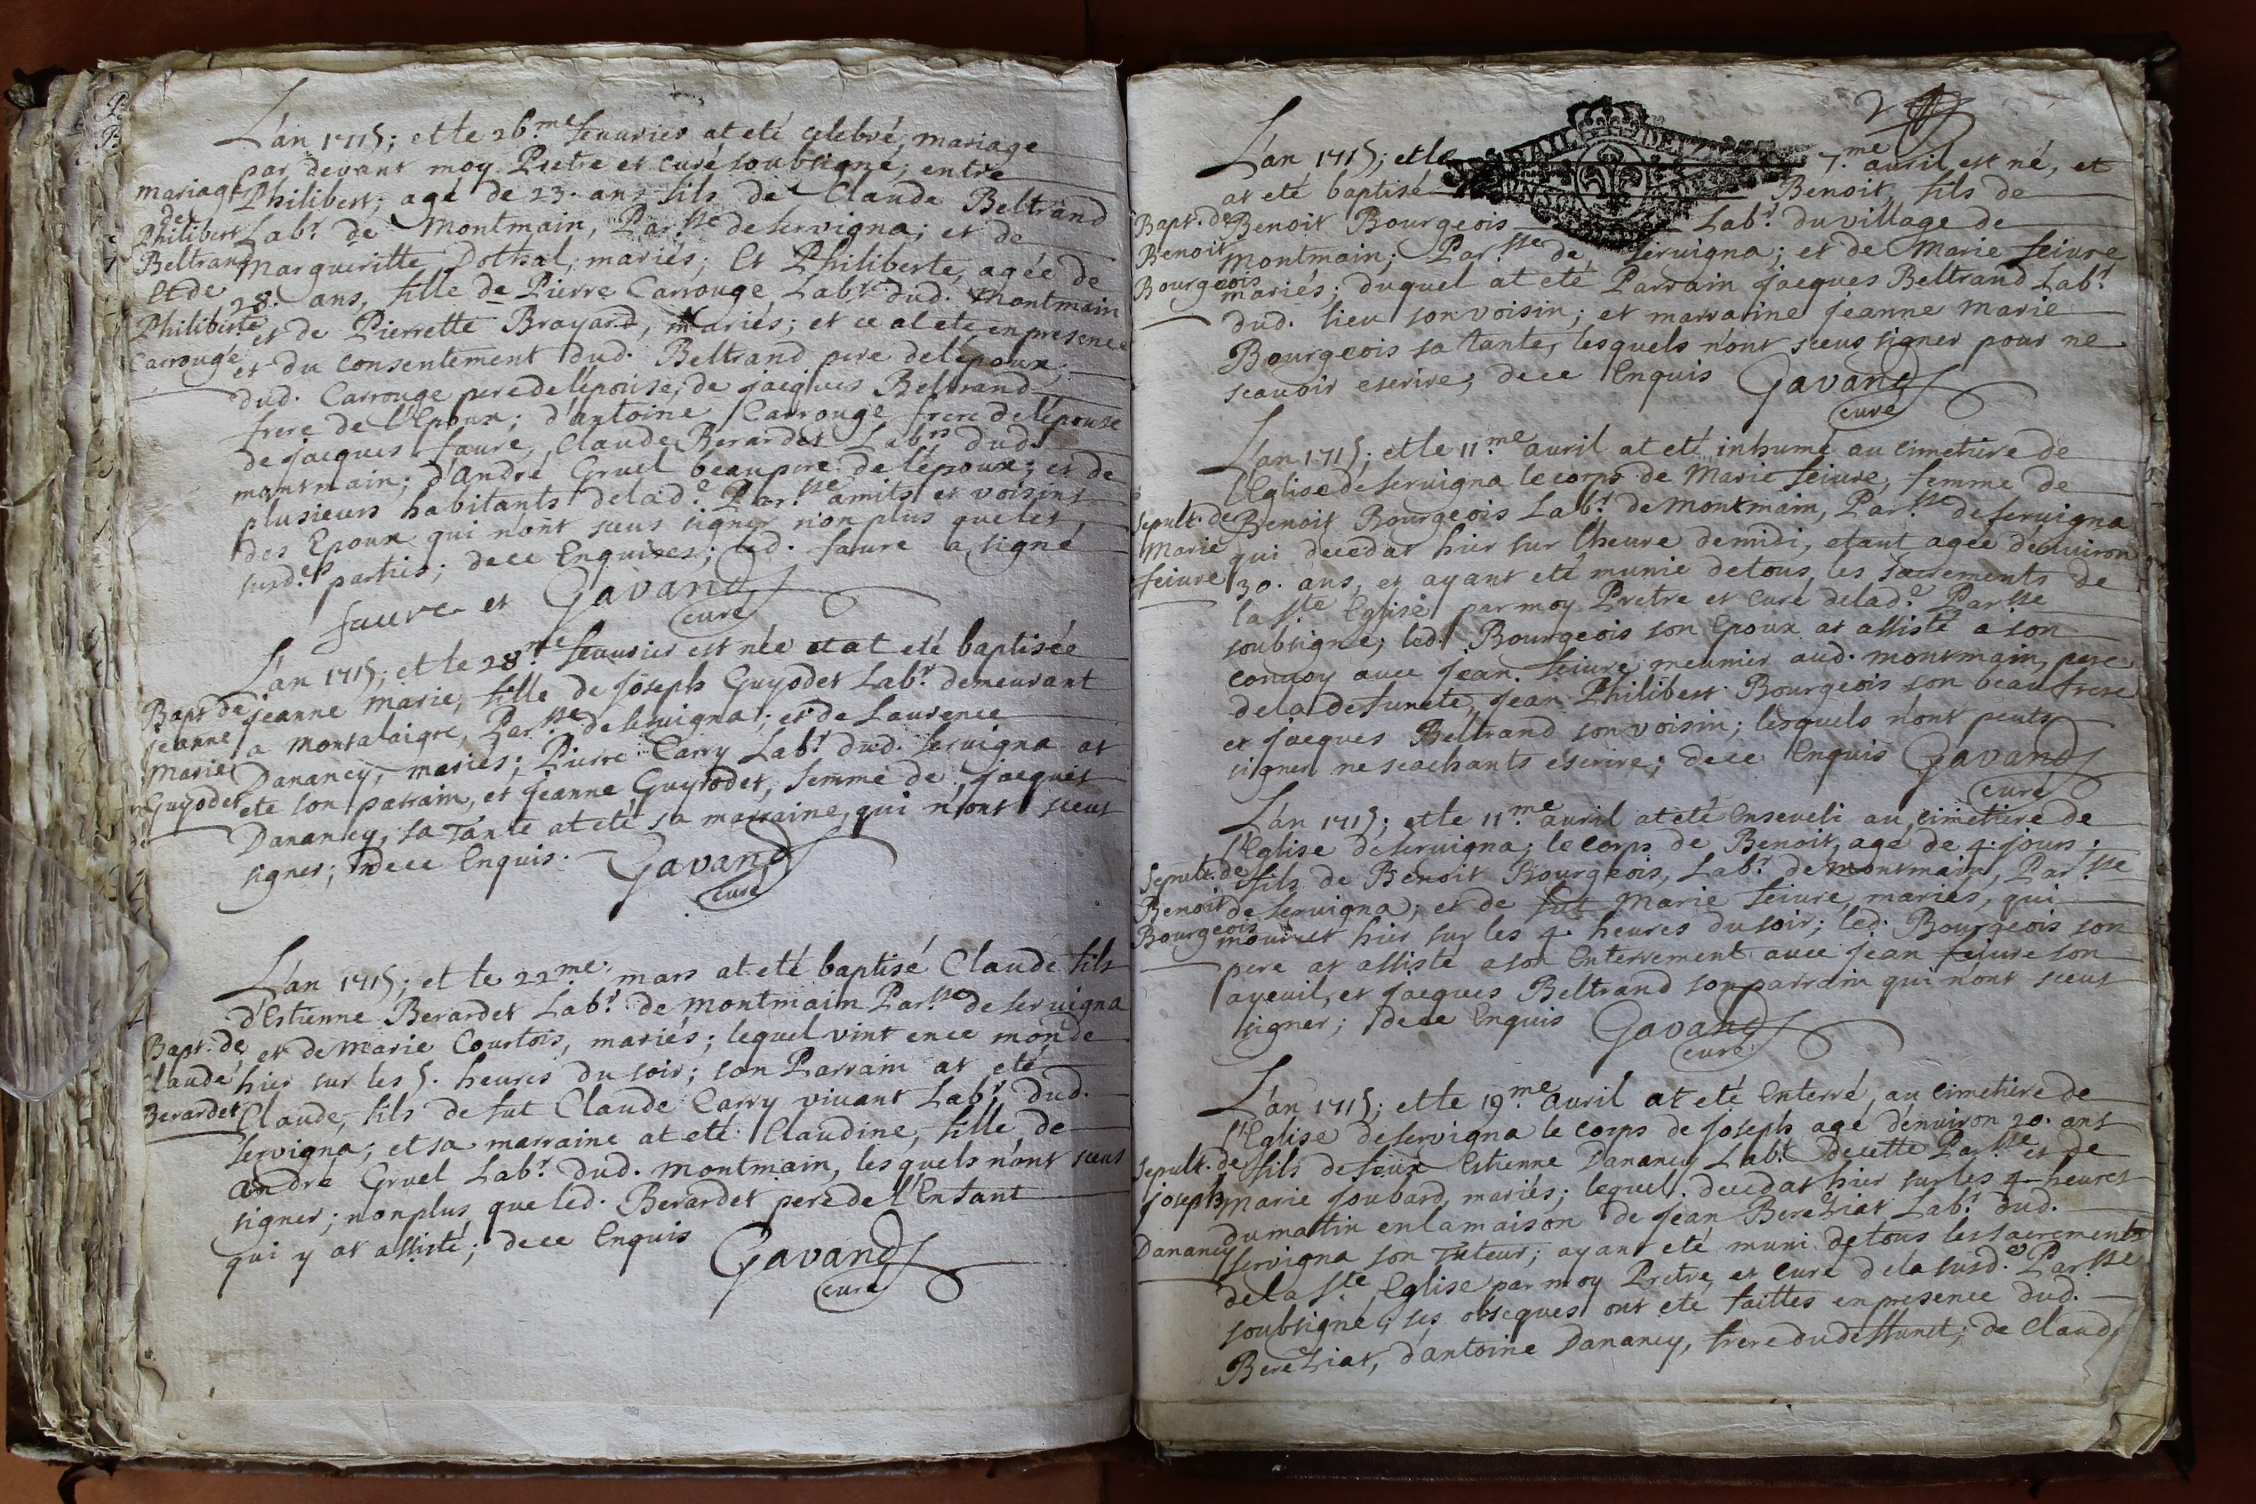 L'an 1715; et le 26.me feuurier at eté celebré, mariage
par devant moy Pretre et curé soubsigné, entre
mariage Philibert; agé de 23. ans fils de Claude Beltrand
de
Philibert Lab.r de Montmain, Par.sse de servigna; et de
Beltrand Margueritte Dothal, mariés; Et Philiberte, agée de
et de 28. ans, fille de Pierre Carrouge Lab.r dud. Montmain
Philiberte et de Pierrette Brayard, mariés; et ce at eté en presence
Carrouge et du consentement dud. Beltrand pere de l'époux;
dud. Carrouge pere de l'épouse, de jacques Beltrand
frere de l'Epoux; d'antoine Carrouge frere de l'épouse
de jacques faure, Claude Berardet Lab.rs dud.
montmain; d'André Gruel beaupere de l'époux; et de
plusieurs habitants de lad.e Par.sse amits et voisins
des Epoux qui n'ont sceus signer non plus que les
susd.es partiés; de ce Enquises; led. faure a signé
faure et Gavand
curé
L'an 1715; et le 28.me feuurier est née et at eté baptisée
Bapt. de jeanne Marie, fille de joseph Guyodet Lab.r demeurant
jeanne a Montalaigre, Par.sse de servigna; et de Laurence
Marie Danancy, mariés; Pierre Carry Lab.r dud. servigna at
Guyodet eté son parrain, et jeanne Guyodet, femme de jacques
Danancy, sa Tante at eté sa marraine, qui n'ont sceus
signer; de ce Enquis. Gavand
curé
L'an 1715; et le 22.me mars at eté baptisé Claude fils
d'Estienne Berardet Lab.r de montmain Par.sse de servigna
Bapt. de et de Marie Courtois, mariés; lequel vint en ce monde
Claude hier sur les 5. heures du soir; son Parrain at eté
Berardet Claude, fils de fut Claude Carry vivant Lab.r dud.
servigna; et sa marraine at eté Claudine, fille de
andré Gruel Lab.r dud. montmain, lesquels n'ont sceus
signer; non plus que led. Berardet pere de l'Enfant
qui y at assisté; de ce Enquis Gavand
curé
2
L'an 1715; et le 7.me auril est né, et
at eté baptisé Benoit, fils de
Bapt. de Benoit Bourgeois Lab.r du village de
Benoit Montmain; Par.sse de servigna; et de Marie feiure
Bourgeois mariés; duquel at eté Parrain jacques Beltrand Lab.r
dud. lieu son voisin; et marraine jeanne marie
Bourgeois sa tante, lesquels n'ont sceus signer pour ne
scauoir escrire; de ce Enquis Gavand
curé
L'an 1715; et le 11.me auril at eté inhumé au cimetiere de
l'Eglise de seruigna le corps de Marie feiure, femme de
sepult. de Benoit Bourgeois Lab.r de montmain, Par.sse de seruigna
Marie qui decedat hier sur l'heure de midi, etant agée d'enuiron
feiure 30. ans, et ayant eté munie de tous les sacrements de
la s.te Eglise par moy Pretre et Curé de lad.e Par.sse
soubsigné; led. Bourgeois son Epoux at assisté a son
conuoy auec jean feiure meunier aud. montmain, pere
de la defuncte, jean Philibert Bourgeois son beau frere
et jacques Beltrand son voisin; lesquels n'ont peuts
signer ne scachants éscrire; de ce Enquis Gavand
curé
L'an 1715; et le 11.me auril at eté Enseueli au cimetiere de
l'Eglise de seruigna; le corps de Benoit, agé de 4. jours;
Sepult. de fils de Benoit Bourgeois, Lab.r de montmain, Par.sse
Benoit de seruigna; et de fut Marie feiure, mariés, qui
Bourgeois mourut hier sur les 4. heures du soir; led. Bourgeois son
pere at assisté a son Enterrement auec jean feiure son
ayeuil, et jacques Beltrand son parrain qui n'ont sceus
signer; de ce Enquis Gavand
curé
L'an 1715; et le 19.me auril at eté Enterré, au cimetiere de
l'Eglise de servigna le corps de joseph agé d'enuiron 20. ans
sepult. de fils de feüe Estienne Danancy Lab.r de cette Par.sse et de
joseph Marie Joubard, mariés; lequel decedat hier sur les 4 heures
du matin en la maison de jean Bereziat Lab.r dud.
Danancy servigna son Tuteur; ayant eté muni de tous les sacrements
de la s.te Eglise par moy Pretre et curé de la susd.e Par.sse
soubsigné; ses obseques ont eté faittes en presence dud.
Bereziat, d'antoine Danancy, frere du deffunct; de Claude